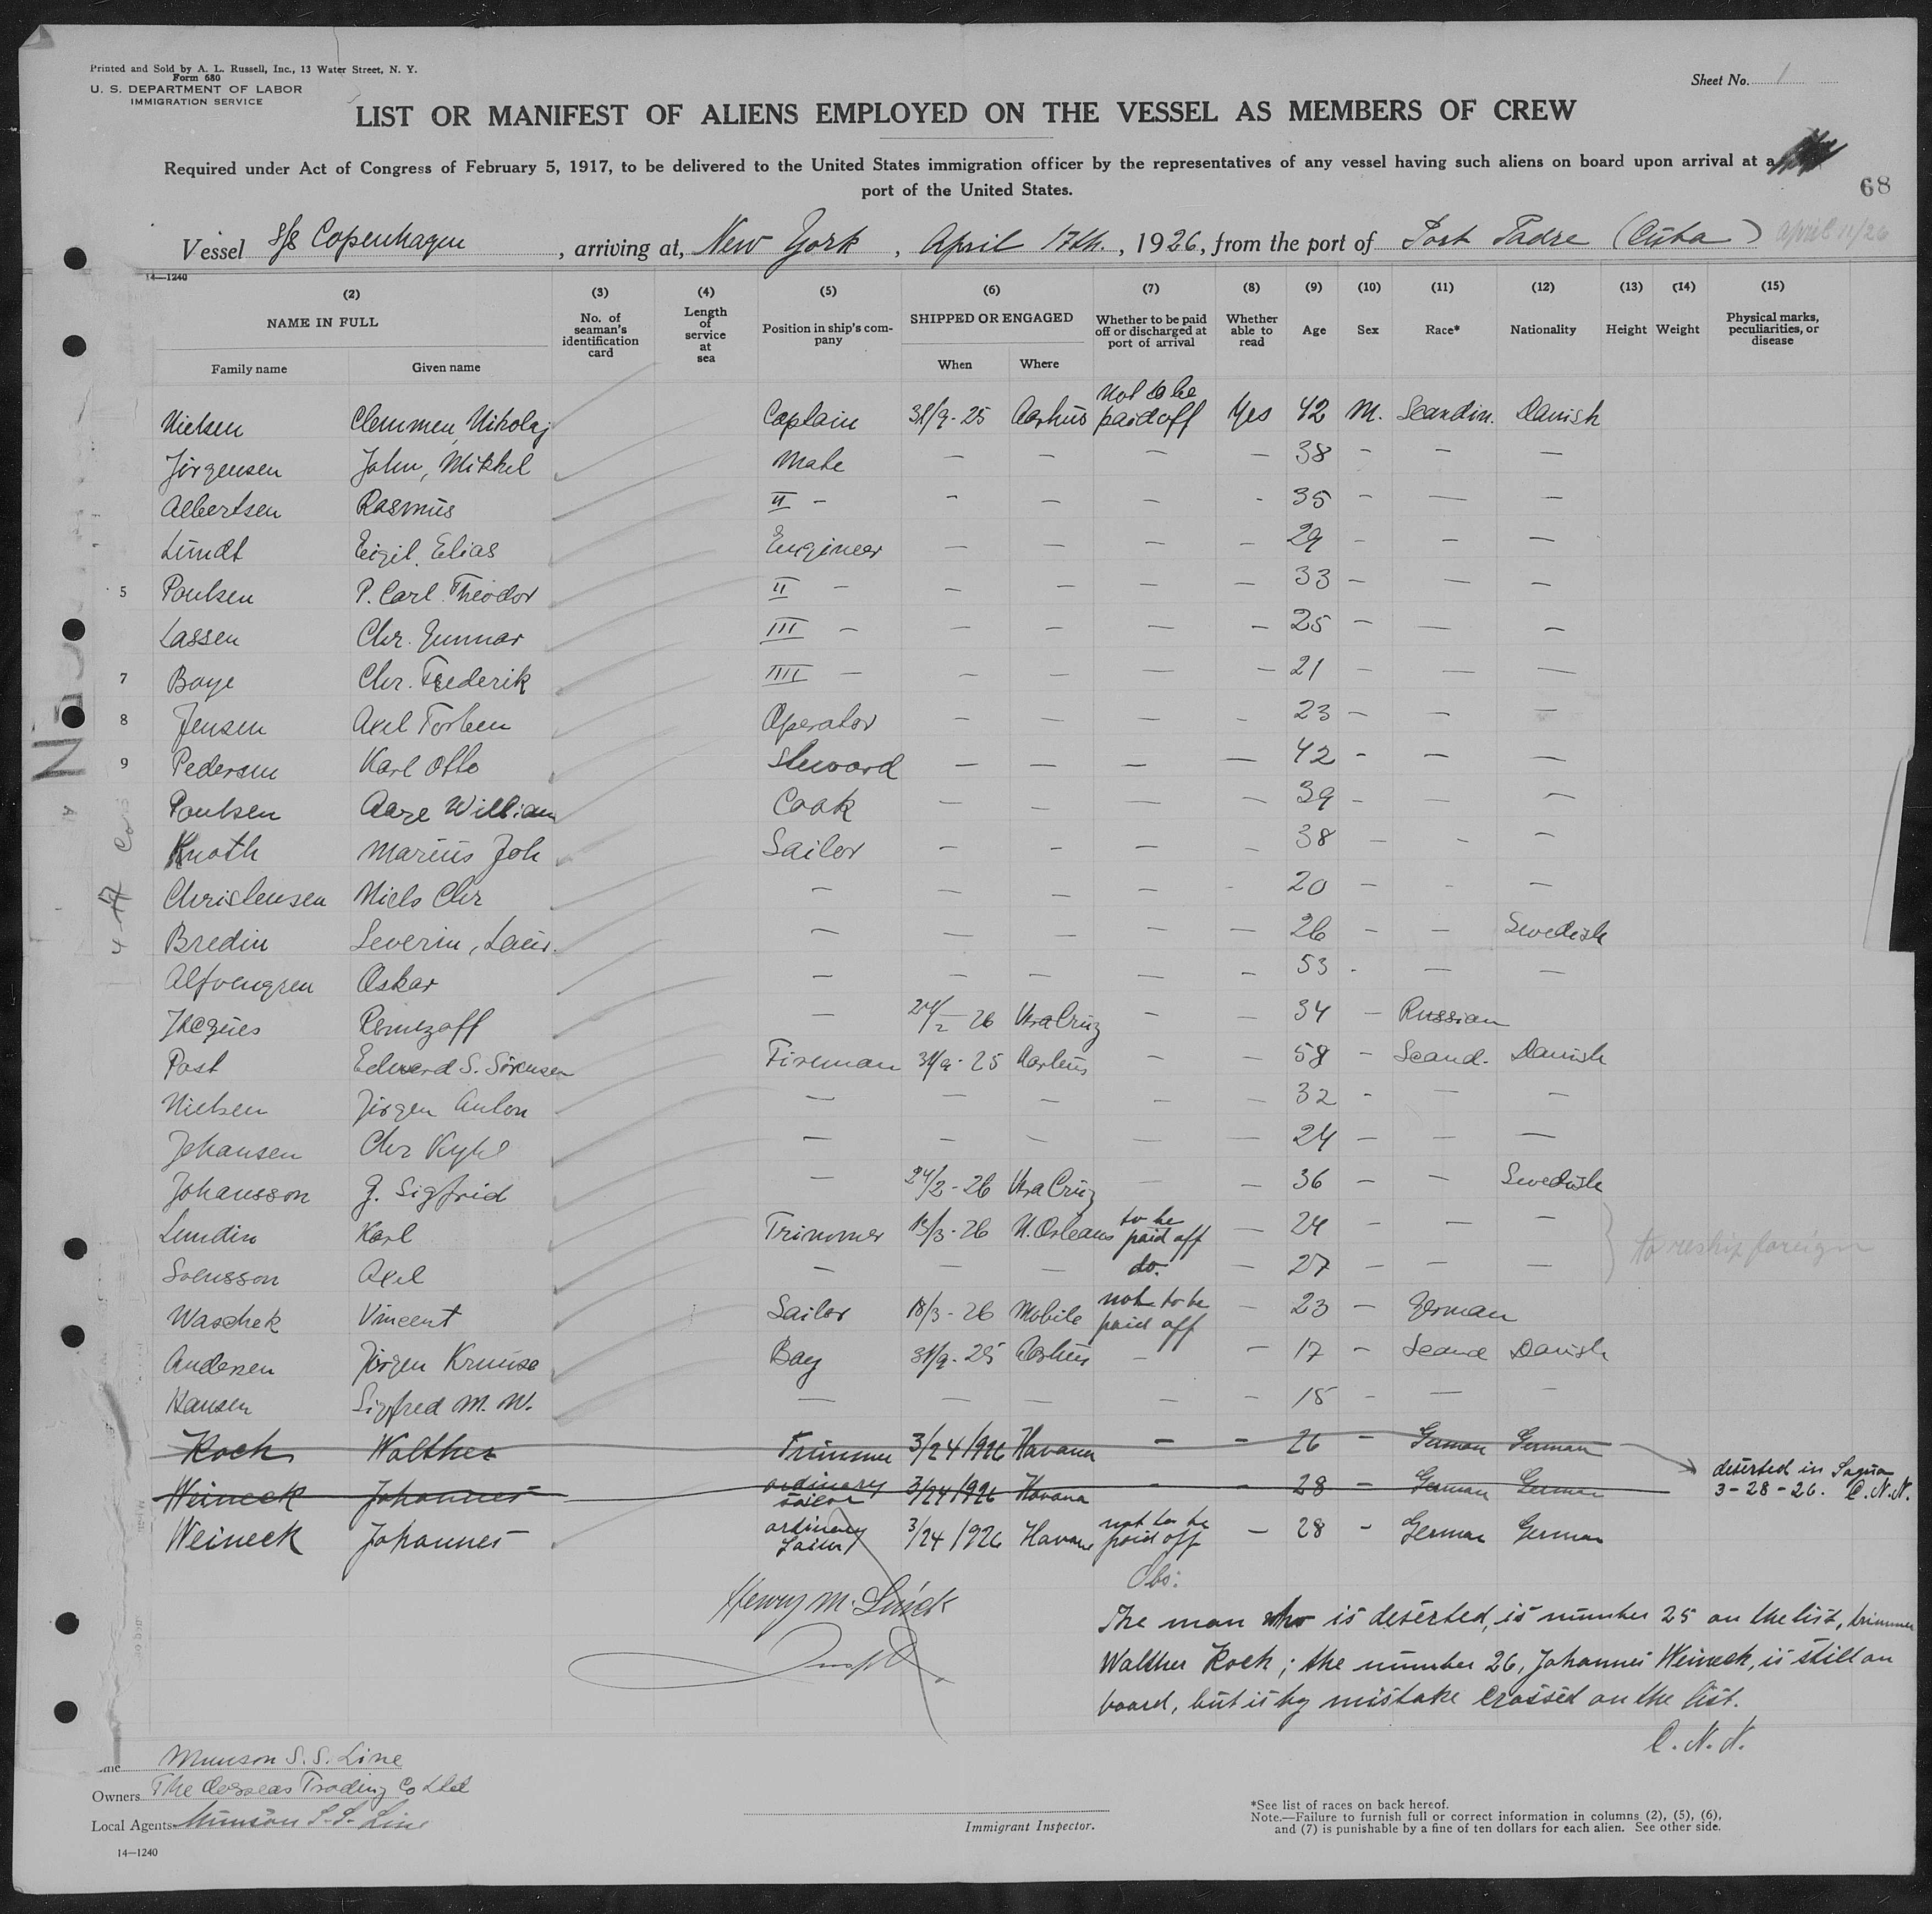 Printed and Sold by A. L. Russell, Inc., 13 Water Street, N. Y.
Form 680
U. S. DEPARTMENT OF LABOR
IMMIGRATION SERVICE
Sheet No. 1
LIST OR MANIFEST OF ALIENS EMPLOYED ON THE VESSEL AS MEMBERS OF CREW
Required under Act of Congress of February 5, 1917, to be delivered to the United States immigration officer by the representatives of any vessel having such aliens on board upon arrival at a
port of the United States.
68
Vessel S/S Copenhagen, arriving at, New York, April 17th., 1926, from the port of Port Padre (Cuba) April 11/26
14—1240
(2) (3) (4) (5) (6) (7) (8) (9) (10) (11) (12) (13) (14) (15)
NAME IN FULL No. of seaman's identification card Length of service at sea Position in ship's company SHIPPED OR ENGAGED Whether to be paid off or discharged at port of arrival Whether able to read Age Sex Race* Nationality Height Weight Physical marks, peculiarities, or disease
Family name Given name When Where
Nielsen Clemmen, Nikolaj Captain 31/9-25 Aarhus not to be paid off Yes 42 M. Scandin. Danish
Jörgensen John, Mikkel Mate — — — — 38 - — —
Albertsen Rasmus II - — — — - 35 - — —
Lundt Eigil, Elias Engineer — — — — 29 - — —
5 Poulsen P. Carl Theodor II — — — — — 33 — — —
Lassen Chr. Gunnar III — — — — — 25 — — —
7 Boye Chr. Frederik IIII — — — — — 21 - — —
8 Jensen Axel Torben Operator — — — - 23 — — —
9 Pedersen Karl Otto Steward — — — — 42 - — —
Poulsen Aage William Cook — — — — 39 - — —
Knoth Marius Joh Sailor — - — — 38 — - —
Christensen Niels Chr — — — — - 20 — - —
Bredin Severin, Laur. — — — — — 26 — — Swedish
Alfvengren Oskar — — — — — 53 - — —
Jacques Remezoff — 24/2-26 Vera Cruz — — 34 — Russian
Post Edward S. Sörensen Fireman 31/9-25 Aarhus — — 58 — Scand. Danish
Nielsen Jörgen Anton — — — — — 32 - — —
Johansen Chr Kyhl — — — — — 24 — — —
Johansson G. Sigfrid — 24/2-26 Vera Cruz — — 36 — — Swedish
Lundin Karl Trimmer 13/3-26 N. Orleans to be paid off — 24 - — —
Svensson Axel — — — do. — 27 — — —
to reship foreign
Waschek Vincent Sailor 18/3-26 Mobile not to be paid off — 23 — German
Andersen Jörgen Kruuse Boy 31/9-25 Aarhus — — 17 — Scand Danish
Hansen Sigfred M. W. — — — — — 15 - — —
Koch Walther Trimmer 3/24/926 Havana — - 26 — German German
deserted in Sagua
3-28-26. C.N.N.
Weineck Johannes ordinary sailor 3/24/926 Havana - - 28 - German German
Weineck Johannes ordinary sailor 3/24/926 Havana not to be paid off — 28 - German German
Obs:
The man who is deserted, is number 25 on the list, trimmer
Walther Koch; the number 26, Johannes Weineck, is still on
board, but is by mistake crossed on the list.
C. N. N.
Munson S. S. Line
Owners The Overseas Trading Co Ltd
Local Agents Munson S.S. Line
Immigrant Inspector.
*See list of races on back hereof.
Note.—Failure to furnish full or correct information in columns (2), (5), (6),
and (7) is punishable by a fine of ten dollars for each alien. See other side.
14—1240